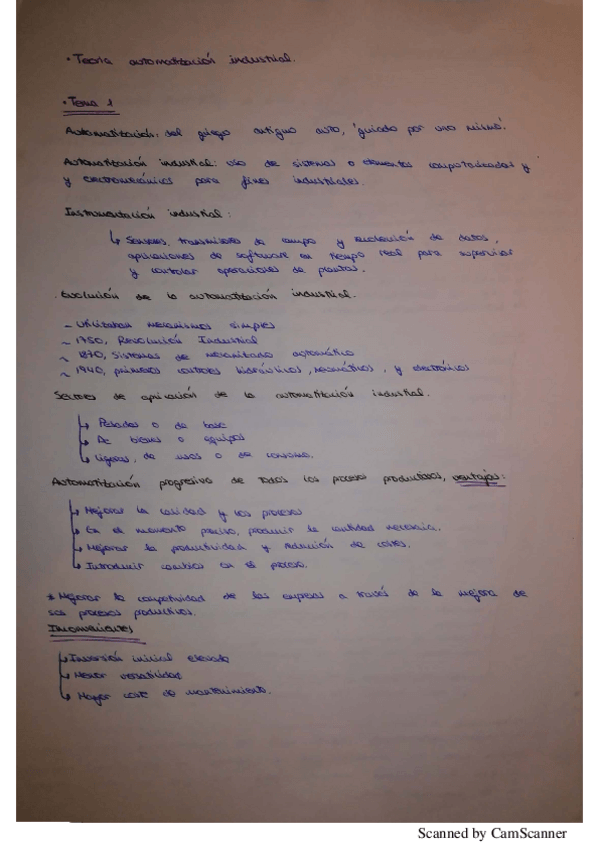 · Teoría automatización industrial.
· Tema 1
Automatización: del griego antiguo auto, 'guiado por uno mismo'.
Automatización industrial: uso de sistemas o elementos computarizados y
y electromecánicos para fines industriales.
Instrumentación industrial:
↳ Sensores, transmisores de campo y recolección de datos,
aplicaciones de software en tiempo real para supervisar
y controlar operaciones de plantas.
. Evolución de la automatización industrial.
- Utilizaban mecanismos simples
~ 1750, Revolución Industrial
~ 1870, Sistemas de mecanizado automático
~ 1940, primeros controles hidráulicos, neumáticos, y electrónicos
Sectores de aplicación de la automatización industrial.
↳ Pesadas o de base
↳ De bienes o equipos
↳ Ligeras, de usos o de consumo.
Automatización progresiva de todos los proceso productivos, ventajas:
↳ Mejorar la calidad y los procesos
↳ En el momento preciso, producir la cantidad necesaria.
↳ Mejorar la productividad y reducción de costes.
↳ Introducir cambios en el proceso.
* Mejorar la competividad de las empresas a través de la mejora de
sus procesos productivos.
Inconvenientes
↳ Inversión inicial elevada
↳ Menor versatilidad
↳ Mayor coste de mantenimiento.
Scanned by CamScanner